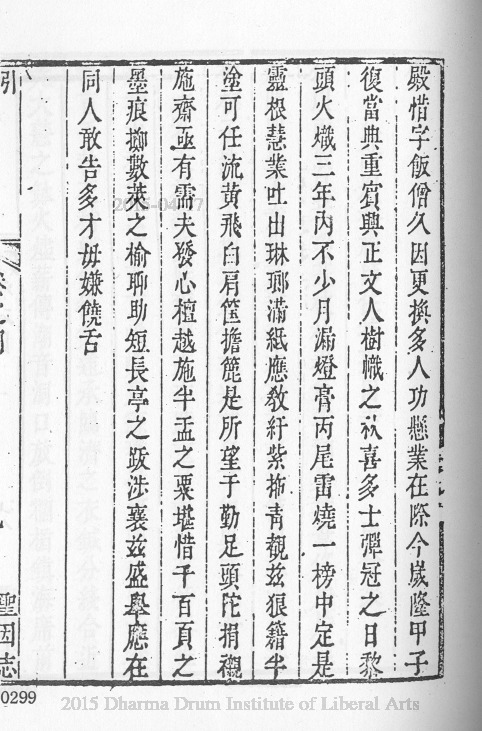 殿惜字飯僧久因更換多人功懸業在際今歲隆甲子
復當典重賓興正文人樹幟之秋喜多士彈冠之日黎
頭火熾三年內不少月漏燈膏丙尾雷燒一榜中定是
靈根慧業吐出琳瑯滿紙應教紆紫拖青覩茲狼籍半
塗可任流黃飛白肩筐擔簏是所望于勤足頭陀捐襯
施齋亟有需夫發心檀越施半盂之粟堪惜千百頁之
墨痕擲數莢之榆聊助短長亭之跋涉襄茲盛舉應在
同人敢告多才毋嫌饒舌
引
聖因志
0299
2015 Dharma Drum Institute of Liberal Arts